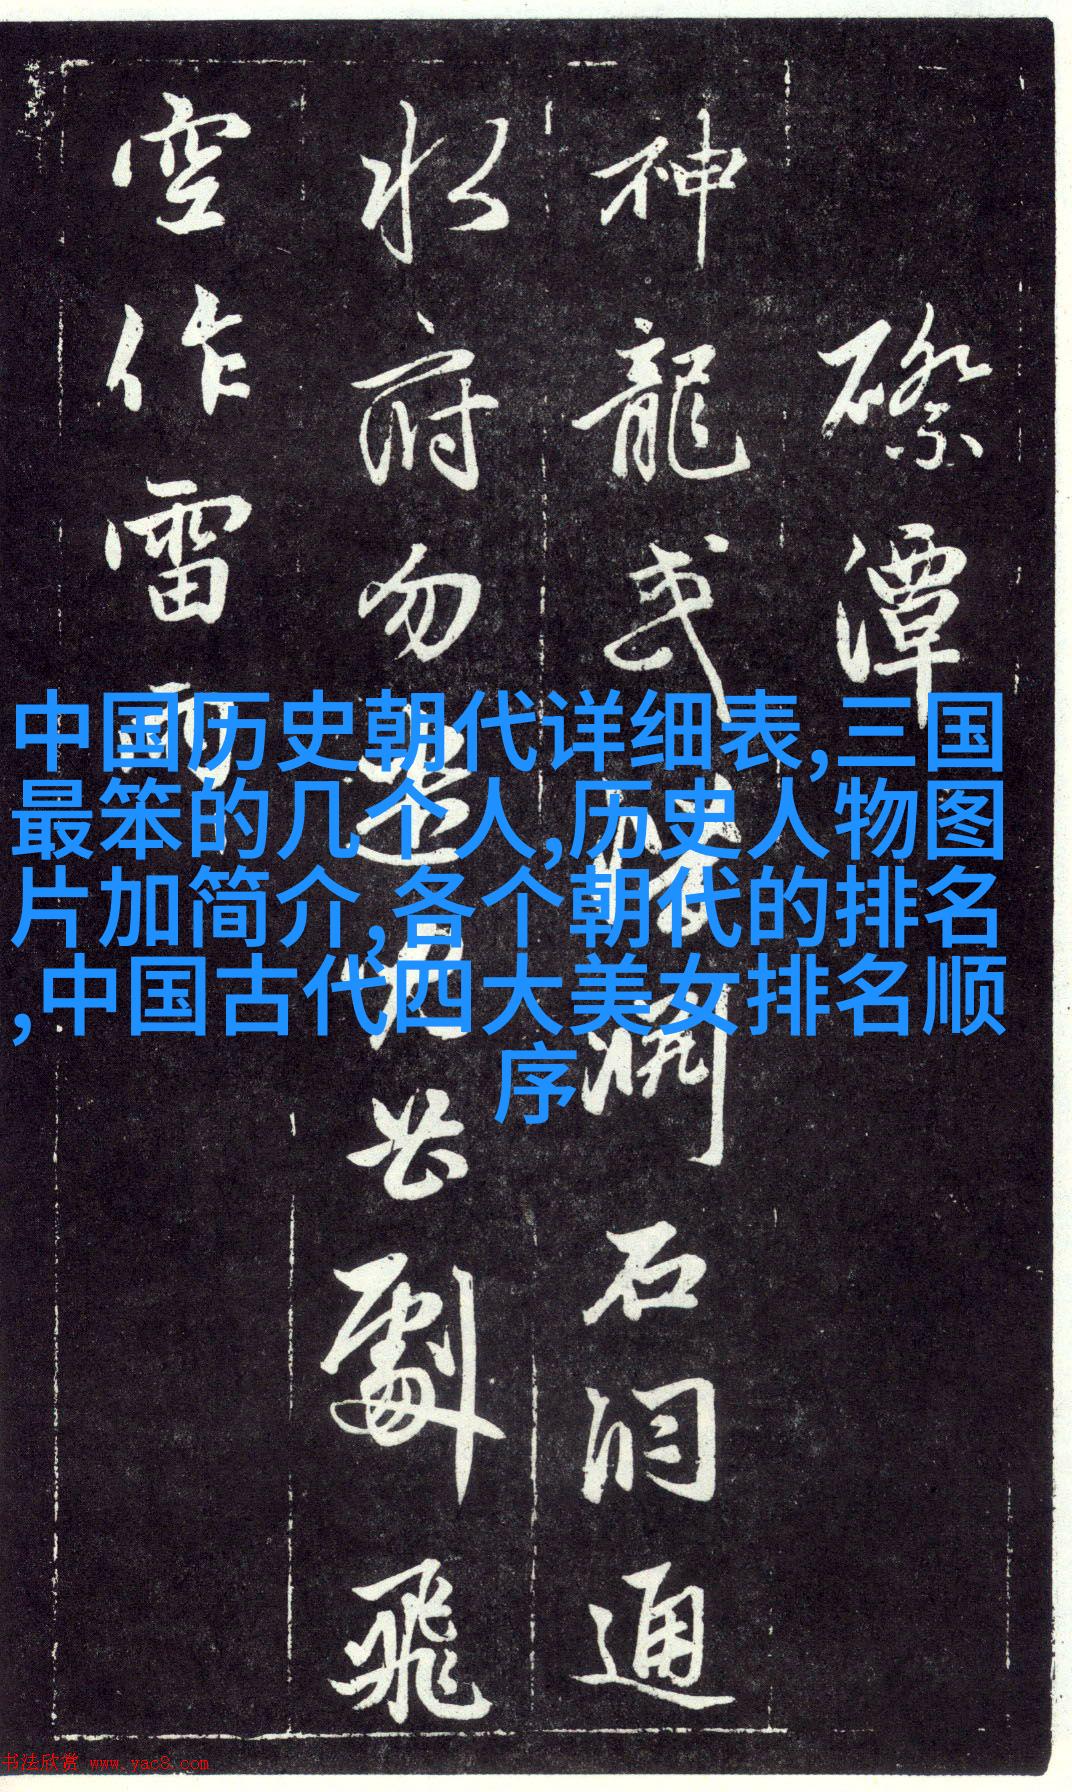 磜潭
神龍或
石洞通
水府勿
必劇飛
空作雷雨
中国历史朝代详细表,三国
最笨的几个人,历史人物图
片加简介,各个朝代的排名
,中国古代四大美女排名顺
序
书法欣赏 www.yac8.com